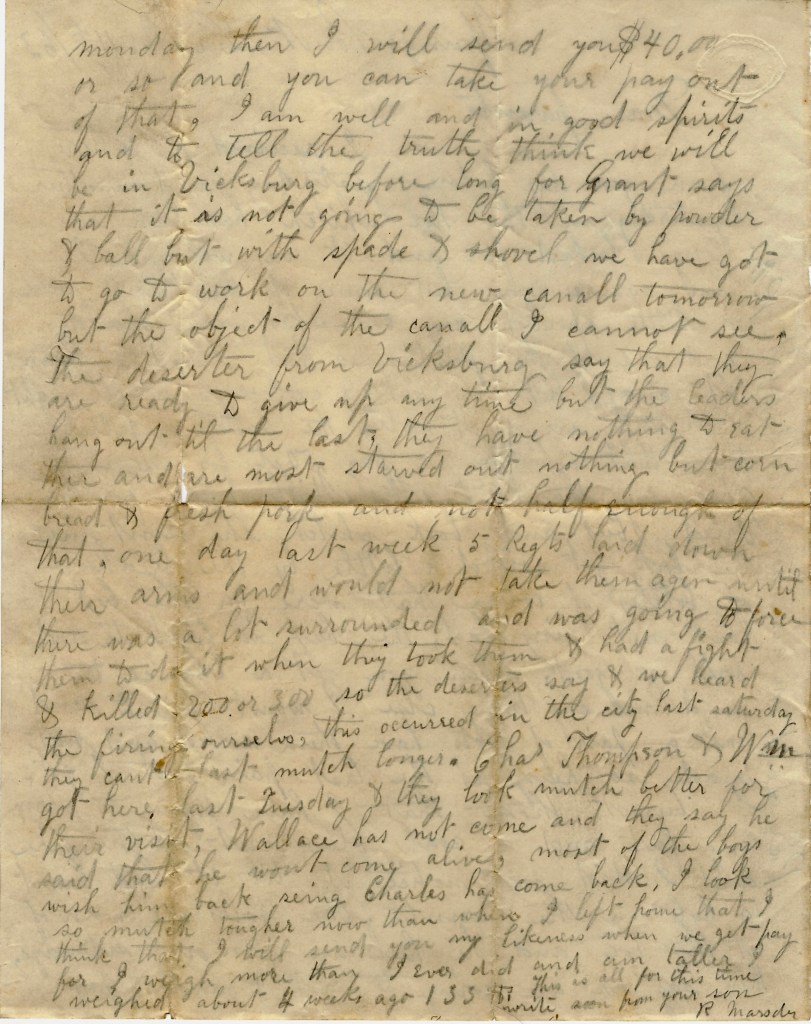 monday then I will send you $40,00
or so and you can take your pay out
of that, I am well and in good spirits
and to tell the truth think we will
be in Vicksburg before long for Grant says
that it is not going to be taken by powder
& ball but with spade & shovel we have got
to go to work on the new canall tomorrow
but the object of the canall I cannot see.
The deserter from Vicksburg say that they
are ready to give up any time but the leaders
hang out til the last, they have nothing to eat
ther and are most starved out nothing but corn
bread & fresh pork and not half enough of
that, one day last week 5 Regts laid down
their arms and would not take them agen until
there was a lot surrounded and was going to force
them to do it when they took them & had a fight
& killed 200 or 300 so the deserters say & we heard
the firing ourselvs, this occurred in the city last saturday
they cant last mutch longer. Chas Thompson & Wm
got here last Tuesday & they look mutch better for
their visit, Wallace has not come and they say he
said that he wont come alive, most of the boys
wish him back seing Charles has come back, I look
so mutch tougher now than when I left home that I
think that I will send you my likeness when we get pay
for I weigh more than I ever did and am taller I
weighed about 4 weeks ago 133 lbs this is all for this time
write soon from your son
R Marsden